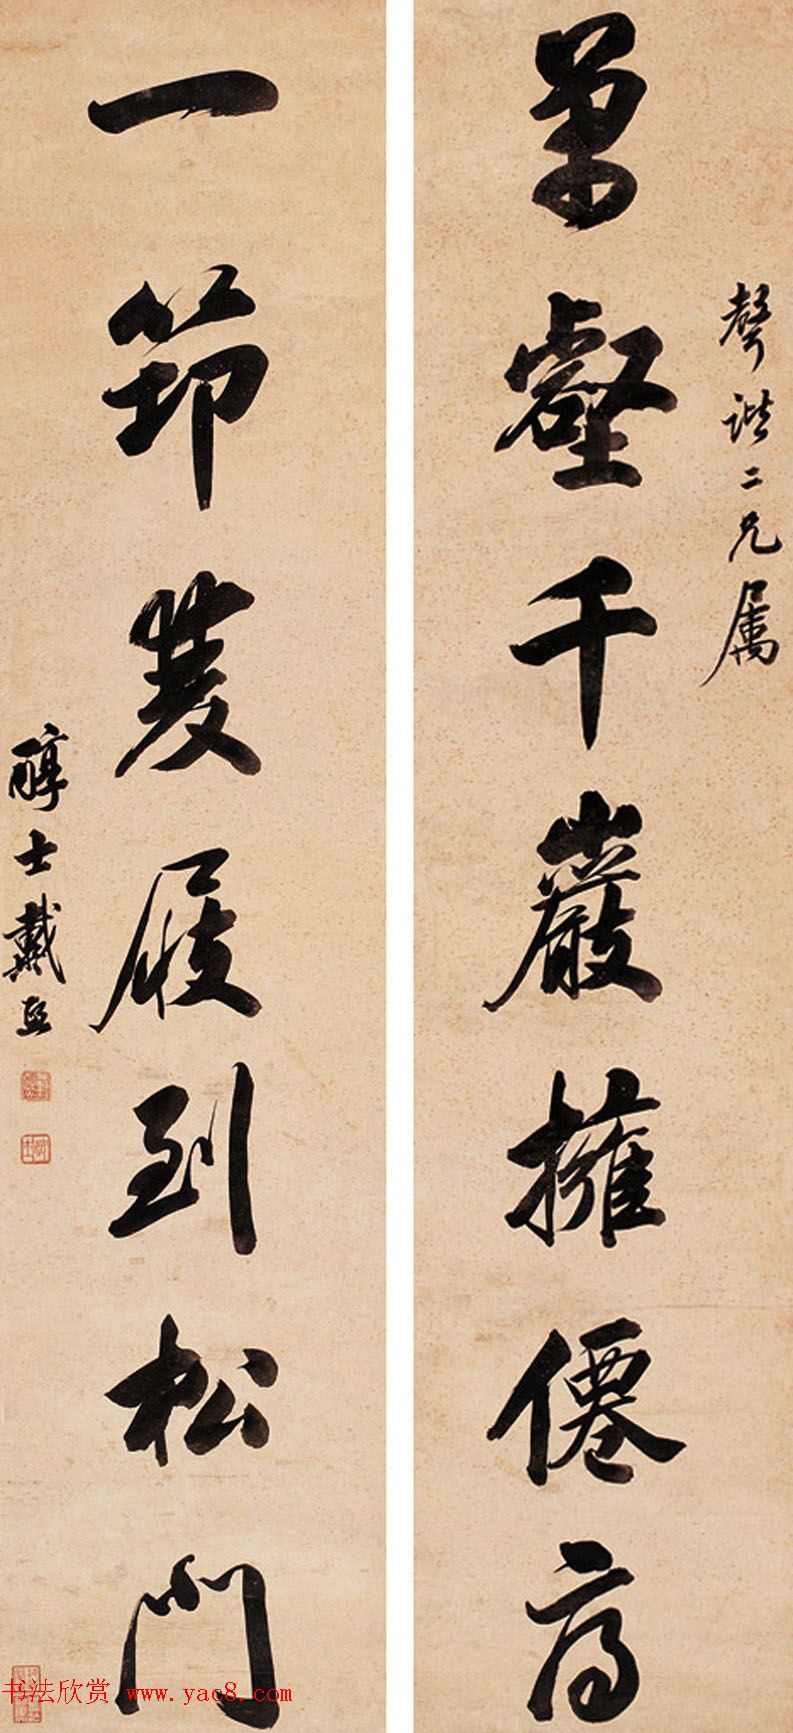 萬壑千巖擁僊
聲諧二兄屬
一筇雙屐到松門
醇士戴熙
书法欣赏 www.yac8.com